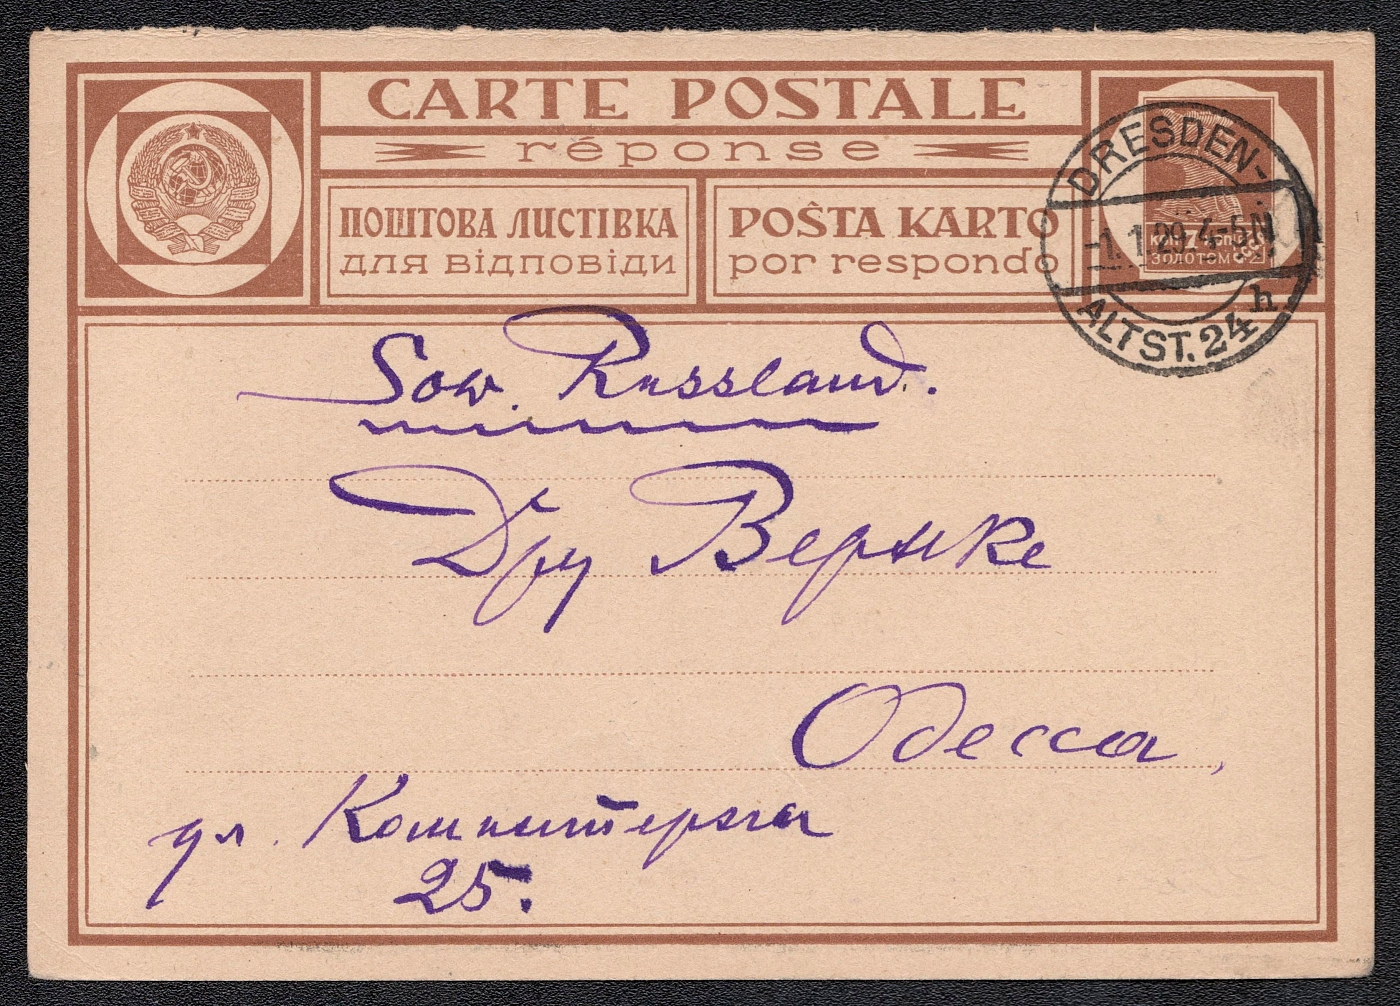 CARTE POSTALE
réponse
ПОШТОВА ЛИСТІВКА
для відповіди
POŜTA KARTO
por respondo
DRESDEN-
-1.1.29. 4-5 N
ALTST. 24 h
ЗОЛОТОМ
Sow. Russland.
Дру Вернке
Одесса,
ул. Коминтерна
25.